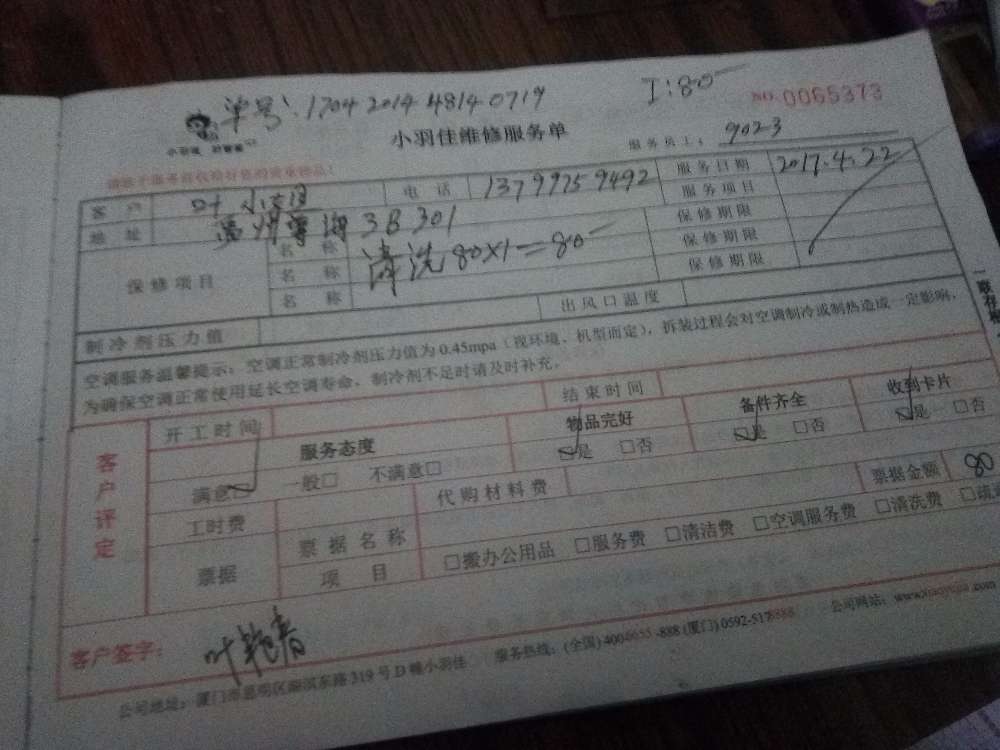 单号：1704 2014 4814 0719
I:80
NO.0065373
小羽佳维修服务单
服务员工：9023
客户 叶小姐 电话 13799759492 服务日期 2017.4.22
地址 温州 3B301 服务项目
保修项目 名称 清洗80×1=80 保修期限
名称 保修期限
名称 保修期限
制冷剂压力值 出风口温度
空调服务温馨提示：空调正常制冷剂压力值为0.45mpa（视环境、机型而定），拆装过程会对空调制冷或制热造成一定影响，
为确保空调正常使用延长空调寿命，制冷剂不足时请及时补充。
客户评定
开工时间 结束时间
服务态度 物品完好 备件齐全 收到卡片
满意□ 一般□ 不满意□ □是 □否 □是 □否 □是 □否
工时费 代购材料费 票据金额 80
票据 票据名称 □搬办公用品 □服务费 □清洁费 □空调服务费 □清洗费
项目
客户签字：叶艳春
公司地址：厦门市思明区 东路319号D幢小羽佳 服务热线：(全国)400 -888 (厦门)0592-5178888 公司网站：